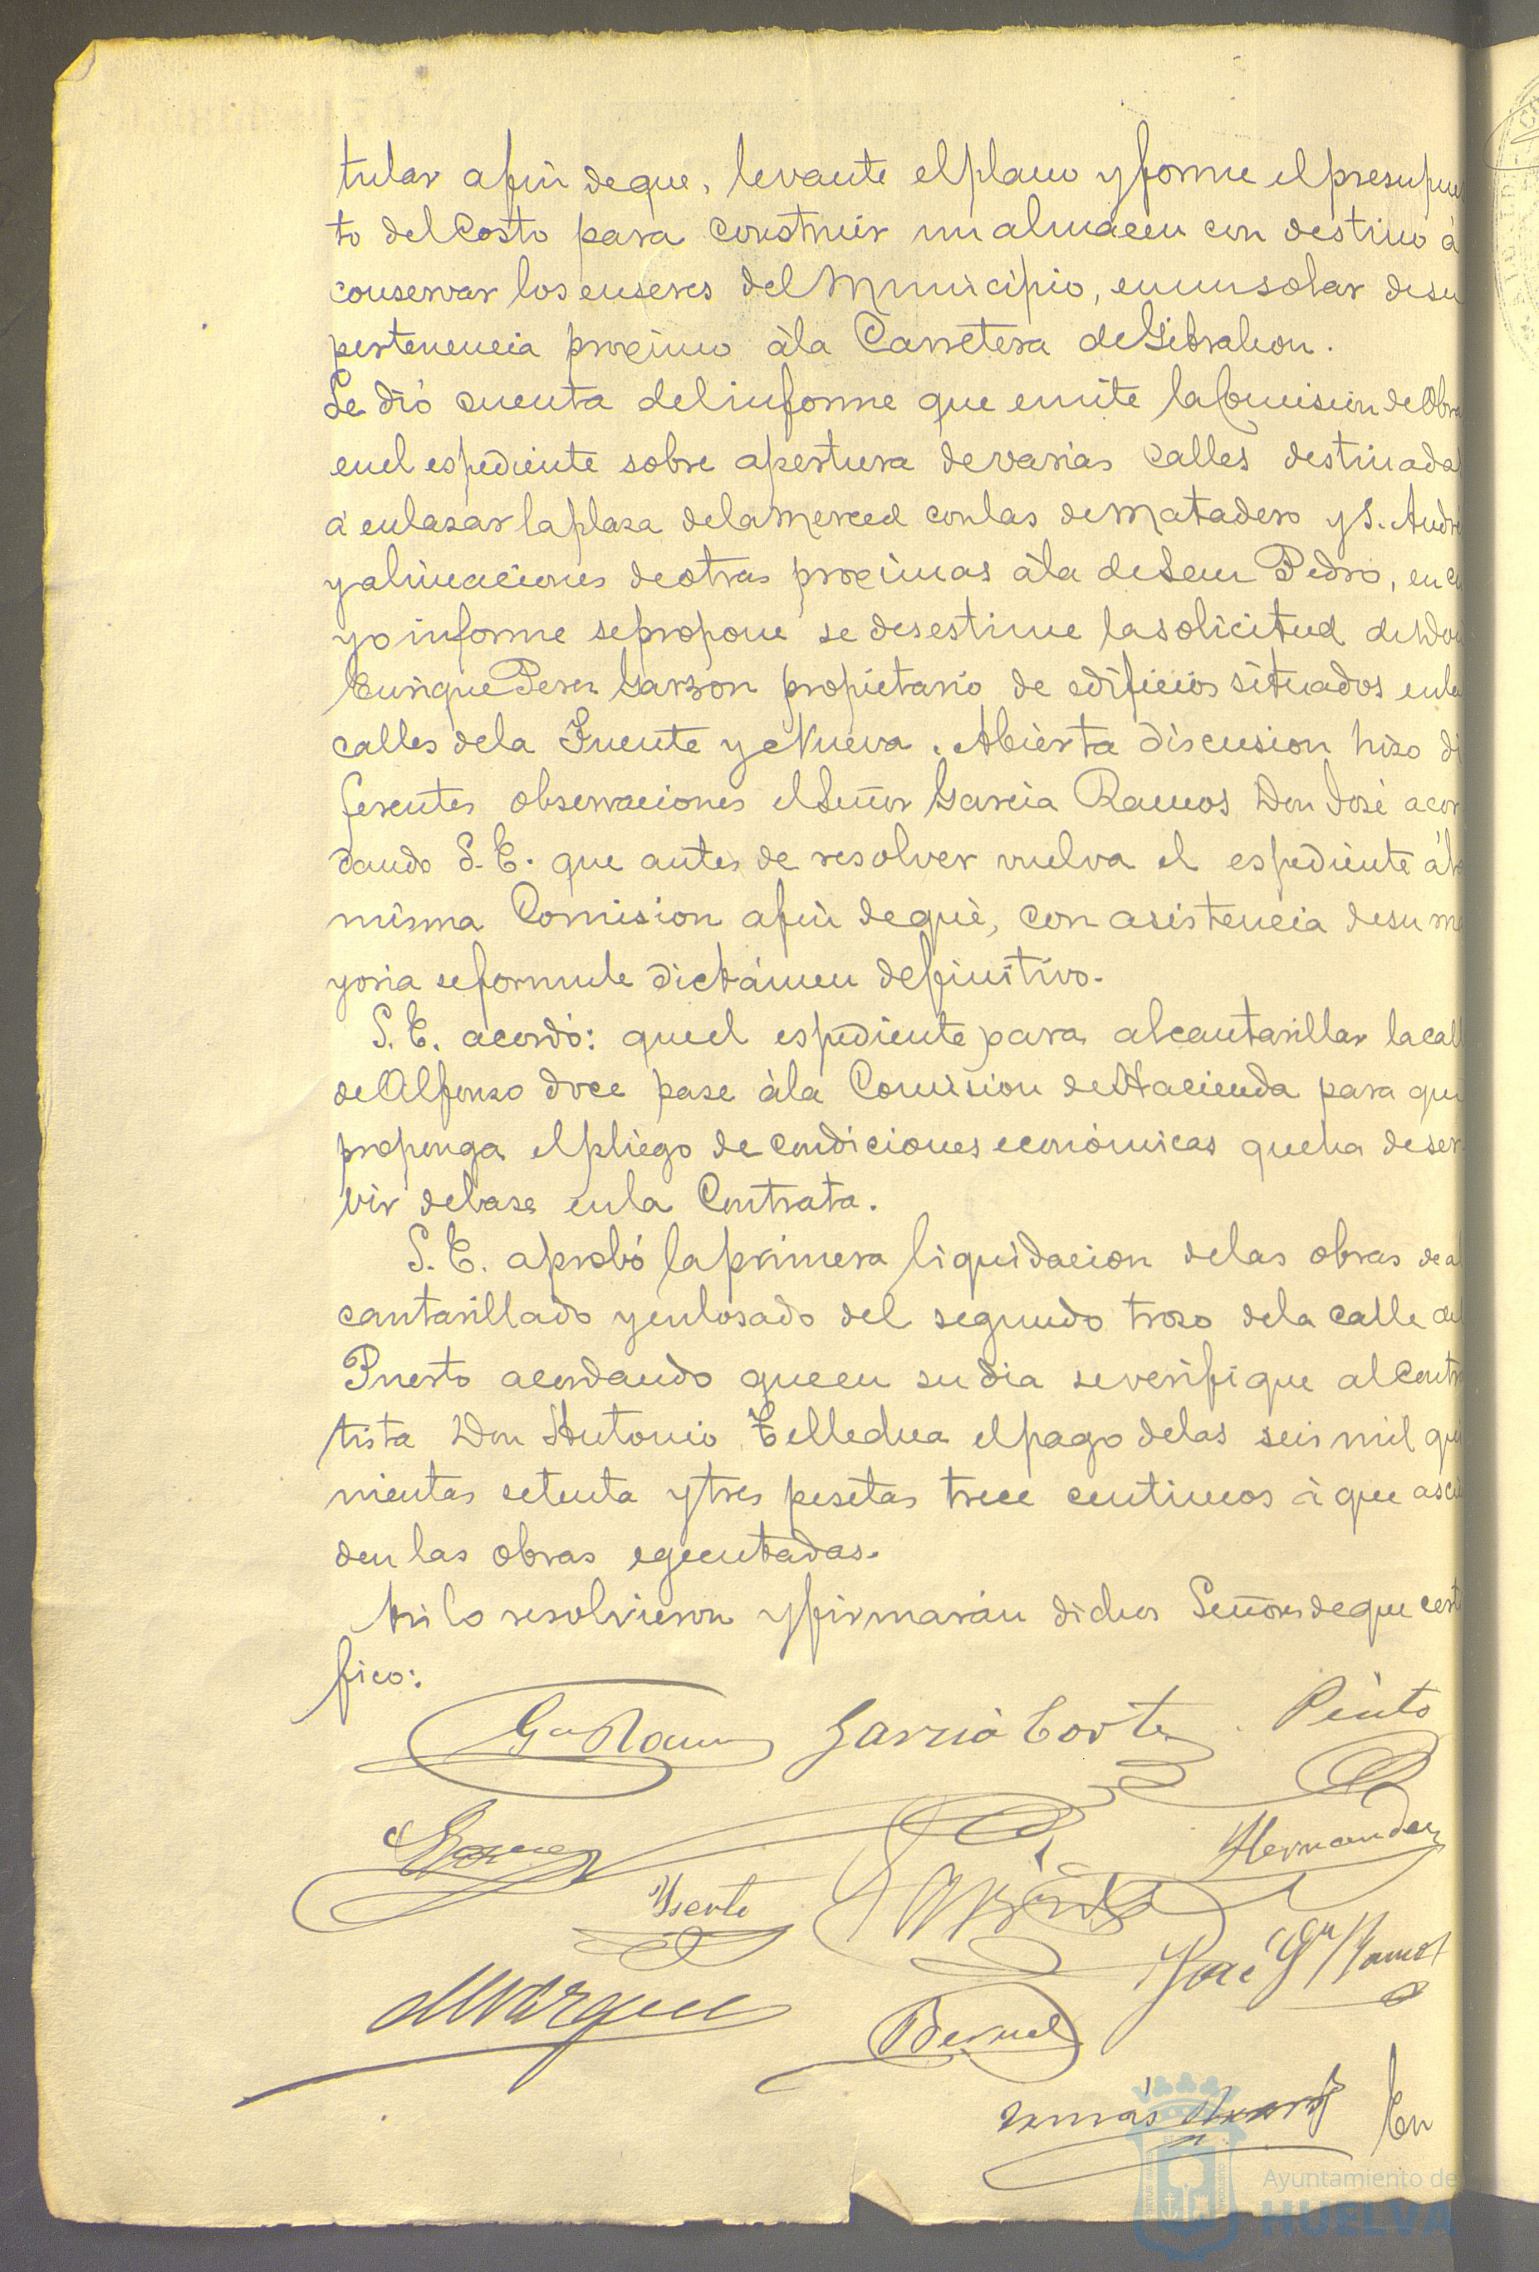 tular a fin de que, levante el plano y forme el presupues
to del Costo para construir un almacen con destino á
conservar los enseres del Municipio, en un solar de su
pertenencia proximo á la Carretera de Gibraleon.
Se dió cuenta del informe que emite la Comision de Obra
en el espediente sobre apertura de varias calles destinadas
á enlazar la plaza de la Merced con las de Matadero y S. Andrés
y alineaciones de otras proximas á la de San Pedro, en cu
yo informe se propone se desestime la solicitud de Don
Enrique Perez Garzon propietario de edificios situados en la
calles de la Fuente y Nueva. Abierta discusion hizo di
ferentes observaciones el Señor Garcia Ramos Don José acor
dando S. E. que antes de resolver vuelva el espediente á la
misma Comision a fin de que, con asistencia de su ma
yoria se formule dictámen definitivo.
S. E. acordó: que el espediente para alcantarillar la call
de Alfonso doce pase á la Comision de Hacienda para que
proponga el pliego de condiciones económicas que ha de ser
vir de base en la Contrata.
S. E. aprobó la primera liquidacion de las obras de al
cantarillado y enlosado del segundo trozo de la calle del
Puerto acordando que en su dia se verifique al Contra
tista Don Antonio el pago de las seis mil qui
nientas setenta y tres pesetas trece centimos á que ascien
den las obras egecutadas.
Asi lo resolvieron y firmarán dichos Señores de que certi
fico:
Ga Ramos Garcia Cortes Pinto
Gomez Hernandez
Yserte
José Ga Ramos
Marquez
Bernal
Tomás En
Ayuntamiento de
HUELVA